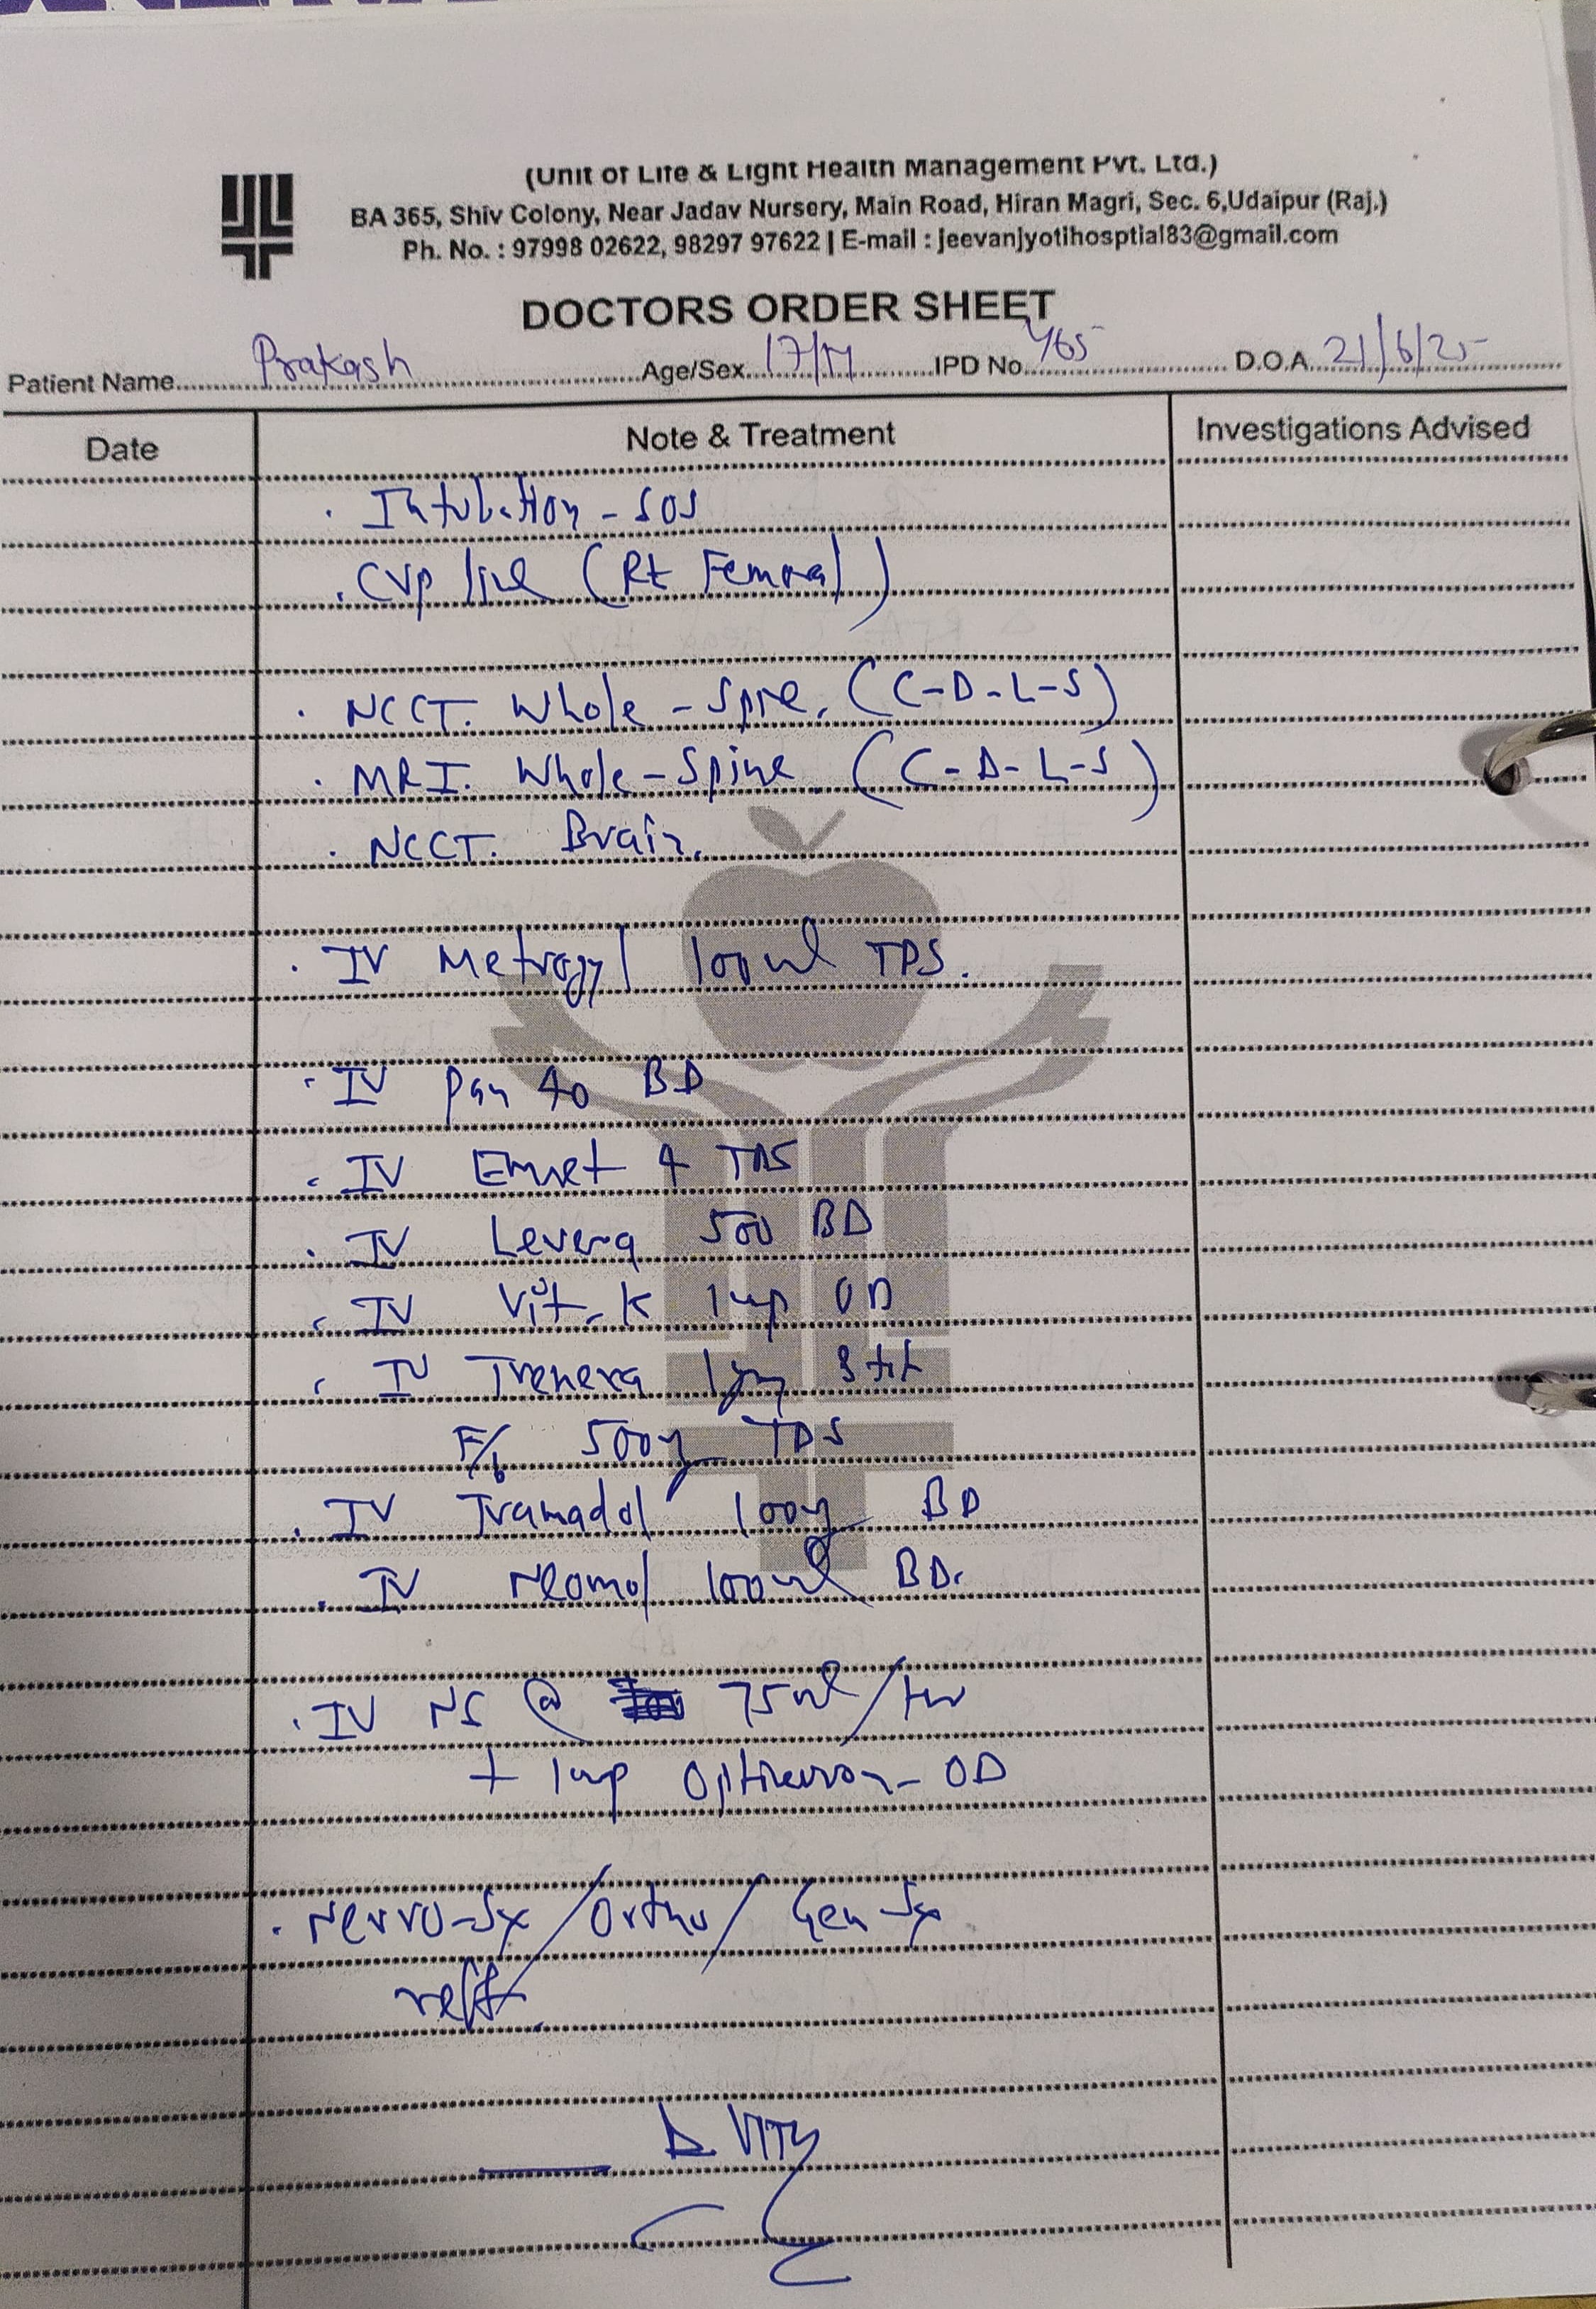 (Unit of Life & Light Health Management Pvt. Ltd.)
BA 365, Shiv Colony, Near Jadav Nursery, Main Road, Hiran Magri, Sec. 6,Udaipur (Raj.)
Ph. No. : 97998 02622, 98297 97622 | E-mail : jeevanjyotihosptial83@gmail.com
DOCTORS ORDER SHEET
Patient Name Prakash Age/Sex 17/M IPD No. 465 D.O.A. 21/6/25
Date Note & Treatment Investigations Advised
. Intubation - SOS
. CVP line (Rt Femoral)
. NCCT. Whole - Spine. (C-D-L-S)
. MRI. Whole-Spine (C-D-L-S)
. NCCT. Brain.
. IV Metrogyl 100ml TDS.
. IV Pan 40 BD
. IV Emset 4 TDS
. IV Levera 500 BD
. IV Vit-K 1amp OD
. IV Trenexa 1gm Stat
F/b 500mg TDS
. IV Tramadol 100mg BD
. IV Neomol 100ml BD.
. IV NS @ 75ml/hr
+ 1amp Optineuron - OD
. Neuro-Sx/Ortho/Gen Sx